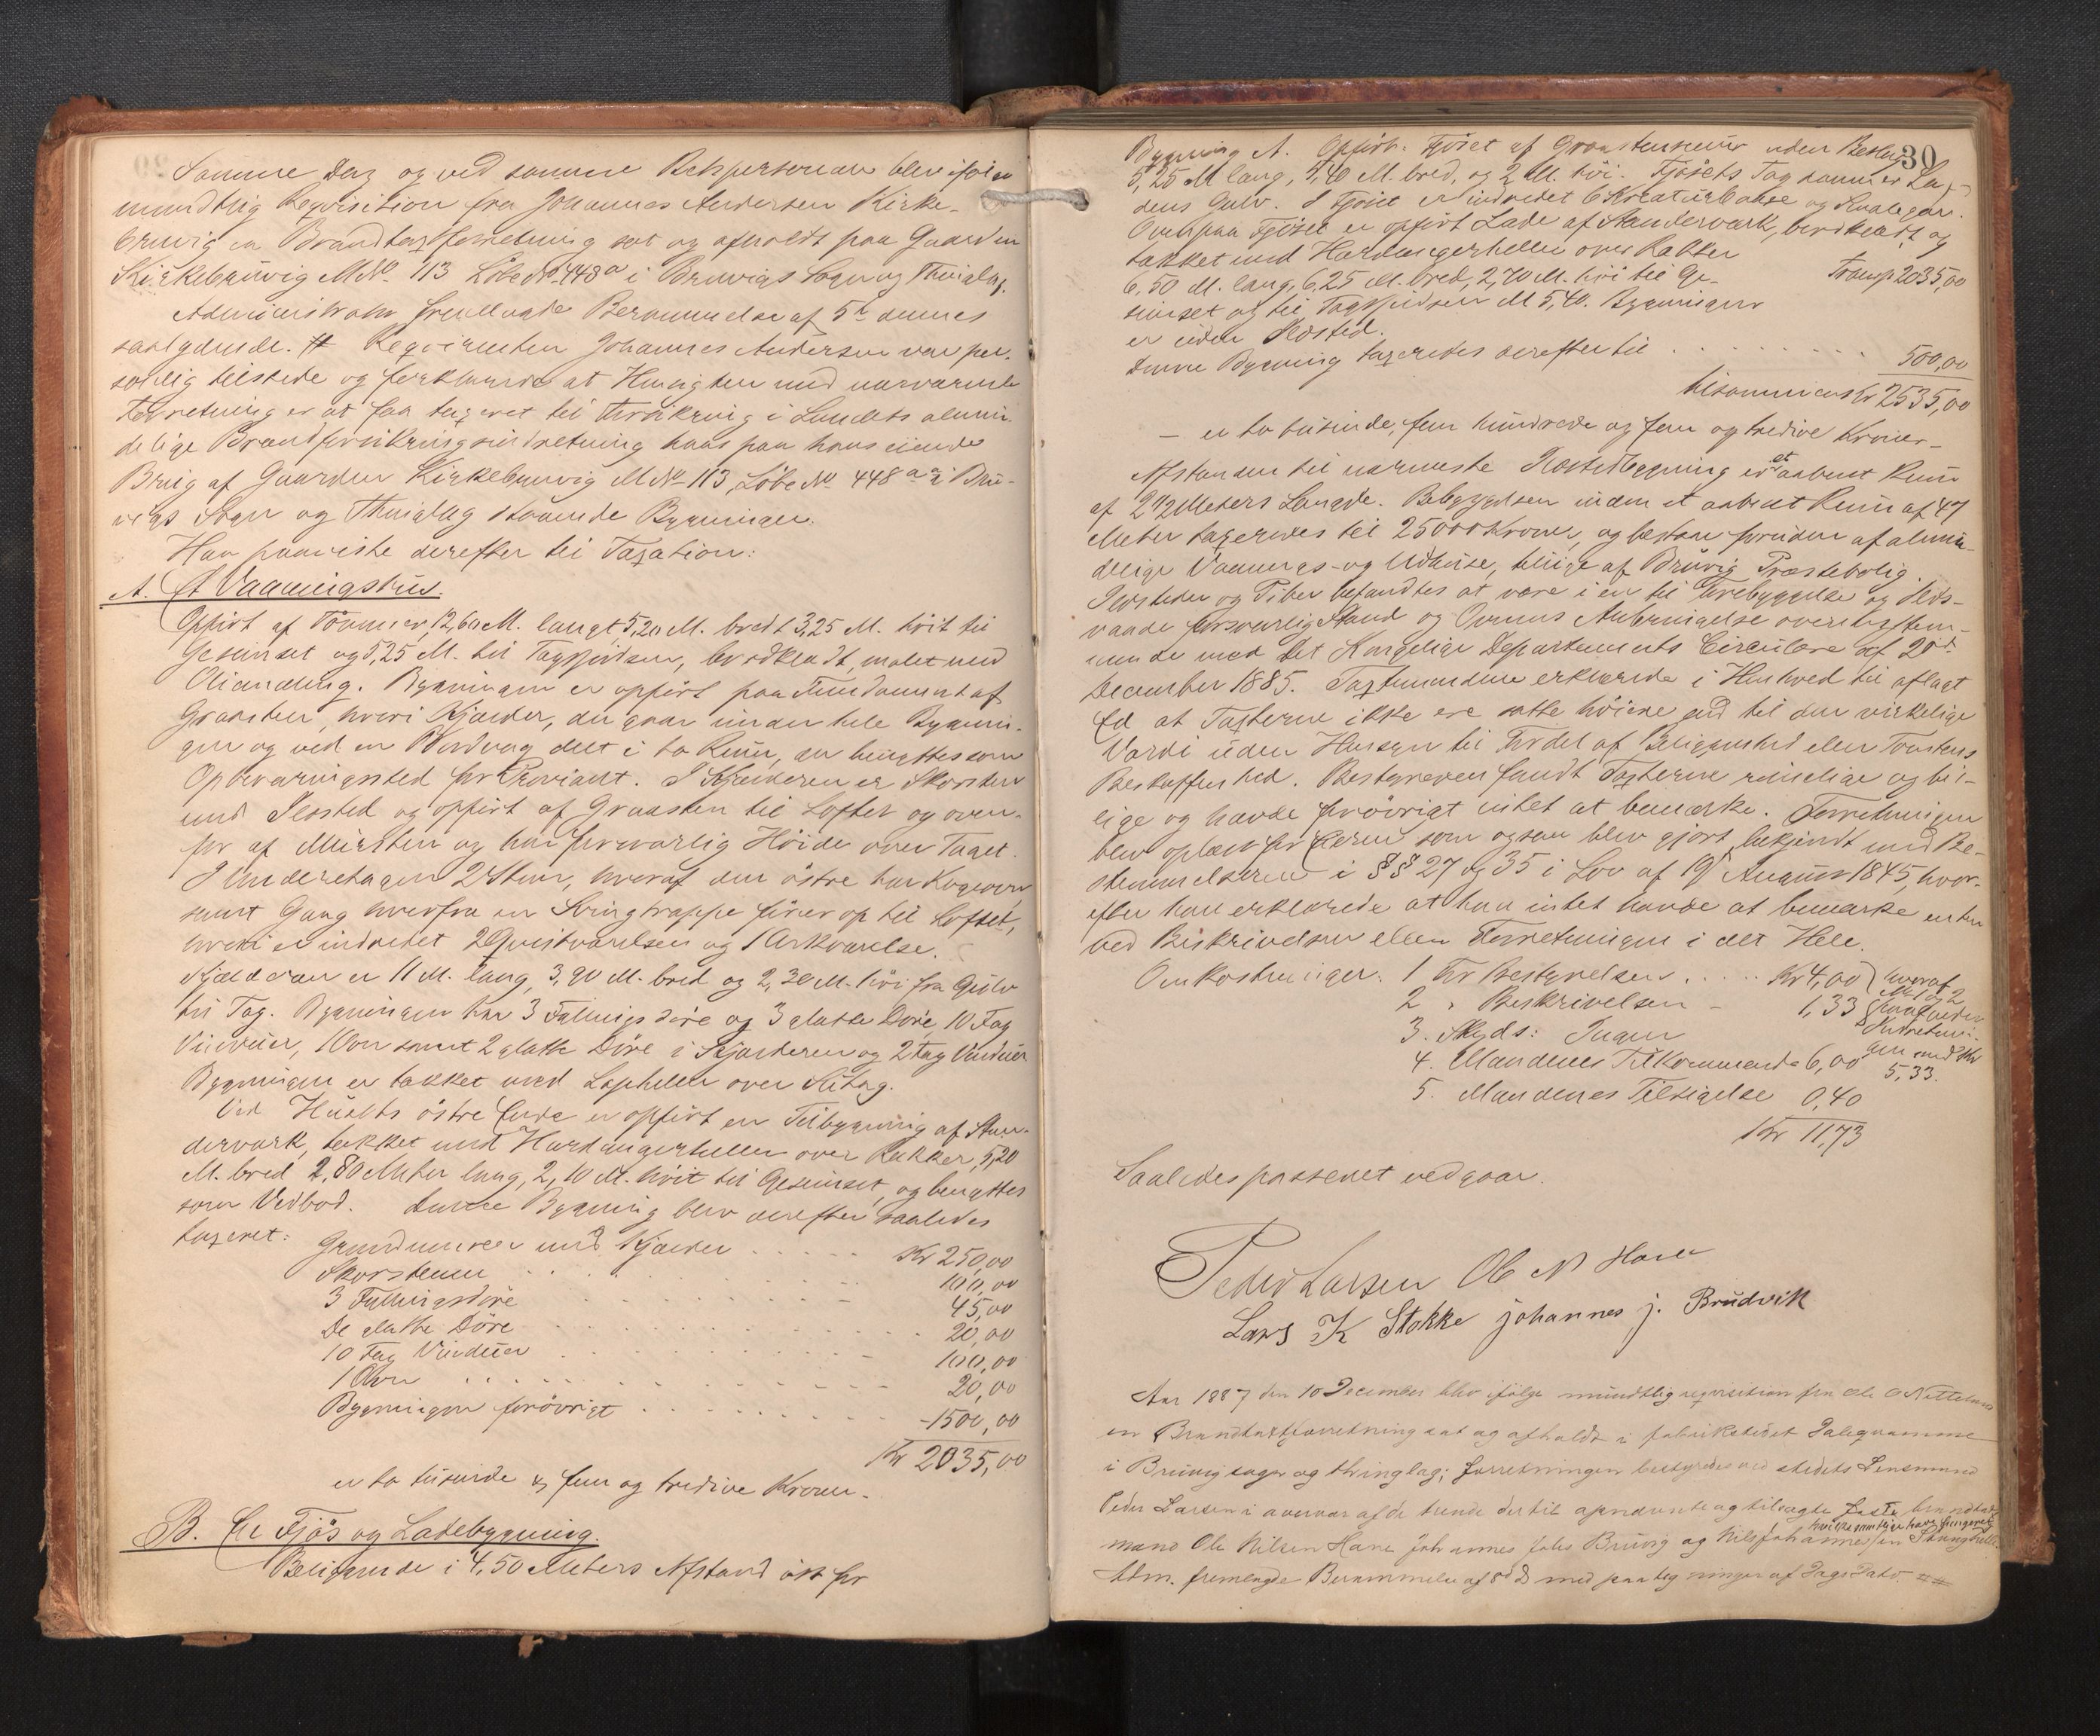 Samme Dag og ved samme Retspersonale blev ifölge
mundtlig Reqvisition fra Johannes Andersen Kirke-
bruvig en Brandtaxtforretning sat og afholdt paa Gaarden
Kirkebruvig M No. 113 Löbe No. 448a i Bruvigs Sogn og Thinglag.
Administrator fremlagde Berammelse af 5te dennes
saalydende. # Reqvirenten Johannes Andersen var per-
sonlig tilstede og forklarede at Hensigten med nærværende
Forretning er at faa taxeret til Forsikring i Landets almin-
delige Brandforsikringsindretning hans paa hans eiende
Brug af Gaarden Kirkebruvig M No 113, Löbe No 448 a i Bru-
vigs Sogn og Thinglag staaende Bygninger.
Han paaviste derefter til Taxation:
A. Et Vaaningshus.
Opfört af Tömmer, 12,60 M. langt 5,20 M. bredt 3,25 M. höit til
Gesimset og 5,25 M. til Tagspidsen, bordklædt, malet med
Oliemaling. Bygningen er opfört paa Fundament af
Graasten, hvori Kjælder, der gaar under hele Bygnin-
gen og ved en Bordvæg delt i to Rum, der benyttes som
Opbevaringssted for Proviant. I Kjælderen er Skorsten
med Ildsted og opfört af Graasten til Loftet og oven-
for af Mursten og har forsvarlig Höide over Taget.
I Underetagen 2 Stuer, hvoraf den östre har Kogeovn
samt Gang hvorfra en Svingtrappe förer op til Loftet,
hvori er indredet 2 Qvistværelser og 1 Arkværelse.
Kjælderen er 11 M. lang, 3,90 M. bred og 2,30 M. höi fra Gulv
til Tag. Bygningen har 3 Fyllingsdöre og 3 glatte Döre, 10 Fag
Vinduer, 1 Ovn samt 2 glatte Döre i Kjælderen og 2 Fag Vinduer
Bygningen er tækket med Lapheller over Altag.
Ved Husets östre Ende er opfört en Tilbygning af Stan-
derværk, tækket med Hardangerheller over Rækker, 5,20
M. bred 2,80 Meter lang, 2,10 M. höit til Gesimset, og benyttes
som Vedbod. Denne Bygning blev derefter saaledes
taxeret:
Grundmuren med Kjælder . . . . . Kr 250,00
Skorstenen . . . . . 100,00
3 Fyllingsdöre . . . . . 45,00
De glatte Döre . . . . . 20,00
10 Fag Vinduer . . . . . 100,00
1 Ovn . . . . . 20,00
Bygningen forövrigt . . . . . -1500,00
Kr 2035,00
er to tusinde & fem og tredive Kroner.
B. En Fjös og Ladebygning.
Beliggende i 4,50 Meters Afstand öst for
30
Bygning A. Opfört. Fjöset af Graastensmur uden Beslag
5,25 M lang, 5,40 M. bred, og 2 M. höi. Fjösets Tag danner La-
dens Gulv. I Fjöset er indredet 6 Kreaturbaase og Kvalegar.
Ovenpaa Fjöset er opfört Lade af Standerværk, bordklædt, og
tækket med Hardangerheller over Rækker
Transp 2035,00
6,50 M. lang, 6,25 M. bred, 2,70 M. höi til Ge-
simset og til Tagspidsen M 5,40. Bygningen
er uden Ildsted.
Denne Bygning taxeredes derefter til . . . . . 500,00
tilsammen Kr 2535,00
— er to tusinde, fem hundrede og fem og tredive Kroner —
Afstanden til nærmeste Ildstedbygning er et aabent Rum
af 2 1/2 Meters Længde. Bebyggelsen inden et aabent Rum af 47
Meter taxeredes til 25000 Kroner, og bestaar foruden af almin-
delige Vaanings- og Udhuse, tillige af Bruvig Præstebolig.
Ildsteder og Piber befandtes at være i en til Forebyggelse og Ilds-
vaade forsvarlig Stand og Ovnens Anbringelse overensstem-
mende med Det Kongelige Departements Circulære af 20de
December 1885. Taxtmændene erklærede i Henhold til aflagt
Ed at Taxterne ikke ere satte höiere end til den virkelige
Værdi uden Hensyn til Fordel af Beliggenhed eller Tomtens
Beskaffenhed. Bestyreren fandt Taxterne rimelige og bil-
lige og havde forövrigt intet at bemærke. Forretningen
blev oplæst for Eieren som ogsaa blev gjort bekjendt med Be-
stemmelserne i §§ 27 og 35 i Lov af 19 August 1845, hvor-
efter han erklærede at han intet havde at bemærke enten
ved Beskrivelsen eller Forretningen i det Hele.
Omkostninger. 1 For Bestyrelsen . . . . . Kr 4,00
2 " Beskrivelsen — 1,33
3. Skyds: Ingen
4. Mændenes Tilkommende 6,00
5. Mændenes Tilsigelse 0,40
Kr 11,73
hvoraf
No 1 og 2
Indretnin-
gen med Kr
5,33.
Saaledes passeret vedgaar.
Peder Larsen Ole N Hane
Lars K Stokke johannes j. Brudvik
Aar 1887 den 10 December blev ifölge mundtlig reqvisition fra Ole O
en Brandtaxtforretning sat og afholdt i fabrikstedet Dalegrammen
i Bruvig sogn og thinglag; forretningen bestyredes ved stedets Lensmand
Peder Larsen i overvær af de trende dertil opnævnte og tilsagte faste brandtaxt
hvilke samtlige have fungeret
mænd Ole Nilsen Hane Johannes Johs Bruvig og Nils Johannessen
Adm. fremlagde Berammelse af 8 d D med paategninger af Dags Dato. ##